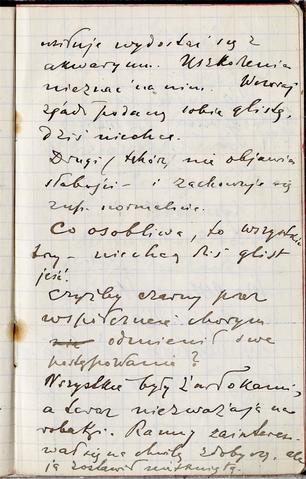 usiłuje wydostać się z
akwaryum. Uszkodzenia
nieznać na nim. Wczoraj
zjadł podaną sobie glistę,
dziś niechce.
Drugi, nie objawia
słabości – i zachowuje się
zup. normalnie.
Co osobliwe, to wszystkie
trzy – niechcą dziś glist
jeść.
Czyżby czarny przez
współczucie chorym
odmienił swe
postępowanie?
Wszystkie były żarłokami,
a teraz niezważają na
robaki. Ranny zaintere-
wał się na chwilę zdobyczą, ale
ją zostawił nietkniętą.